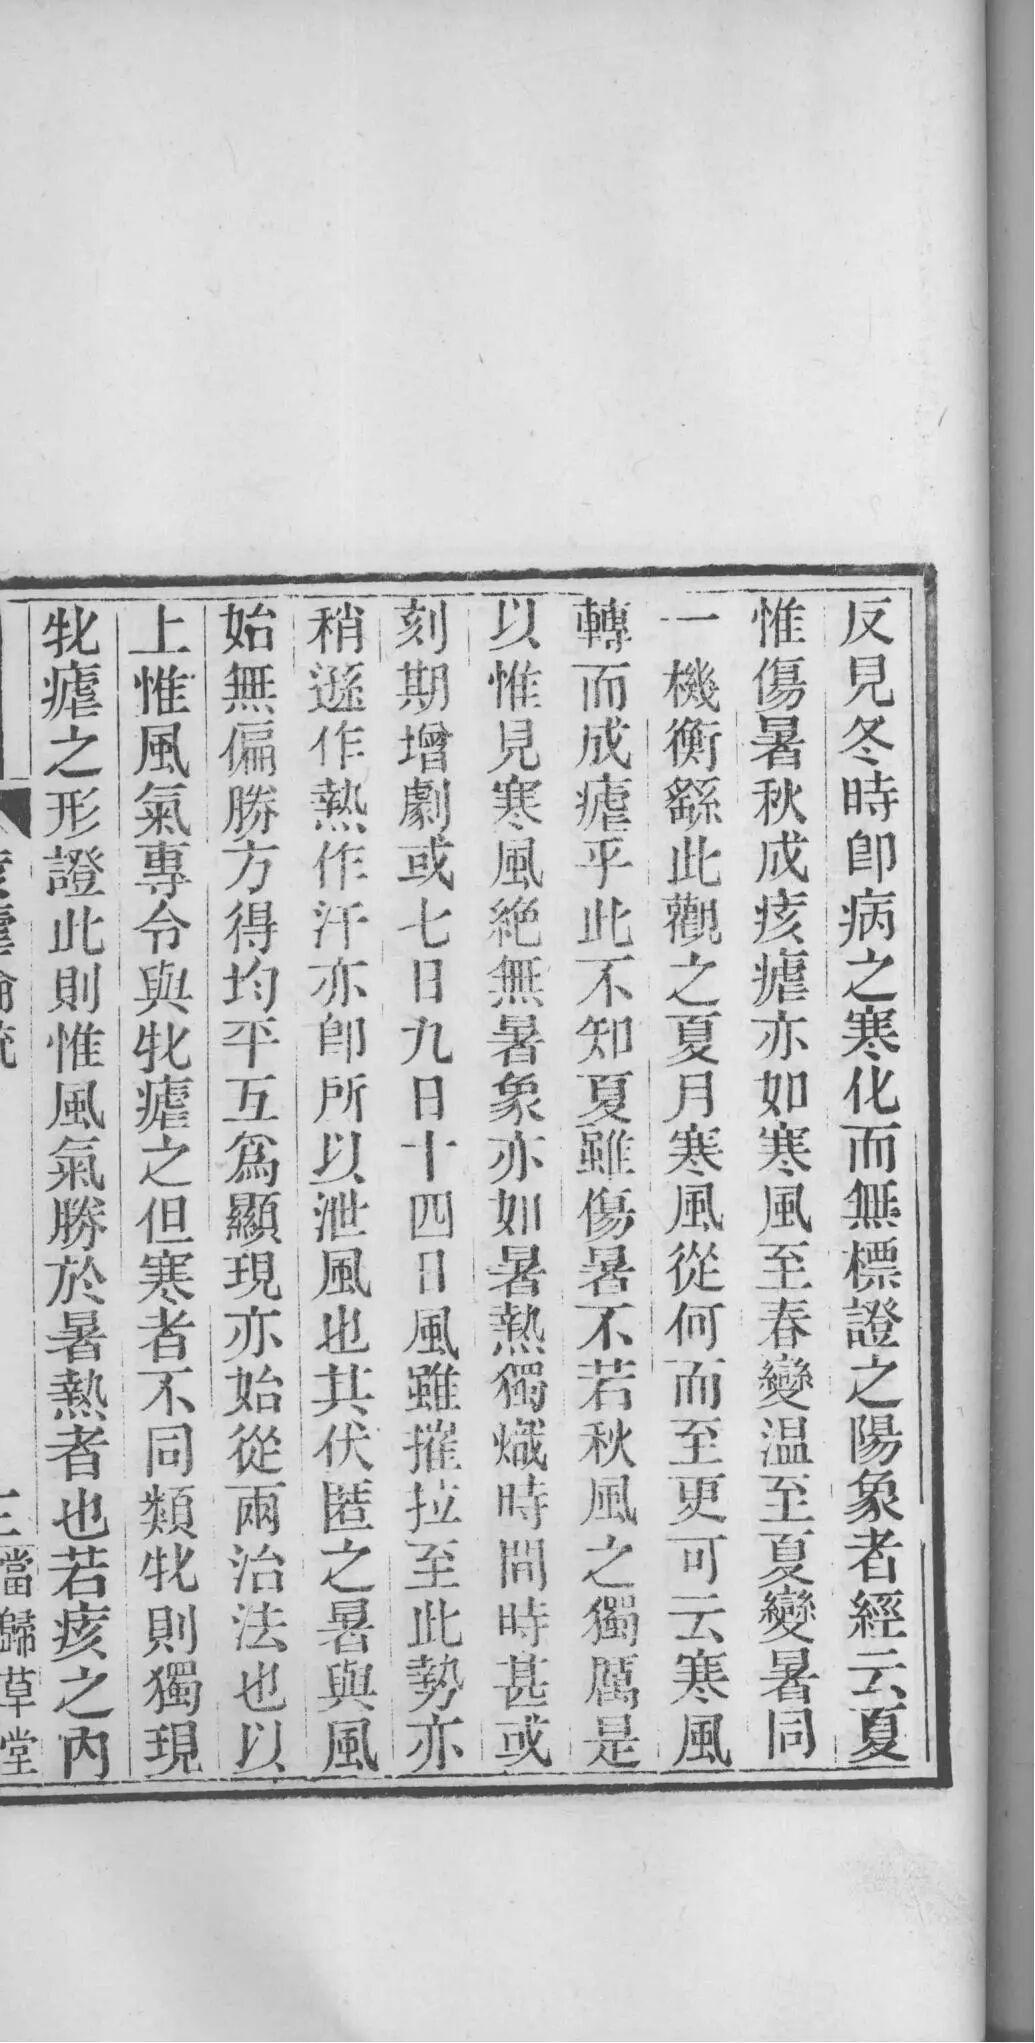 反見冬時卽病之寒化而無標證之陽象者經云夏
惟傷暑秋成痎瘧亦如寒風至春變温至夏變暑同
一機衡繇此觀之夏月寒風從何而至更可云寒風
轉而成瘧乎此不知夏雖傷暑不若秋風之獨厲是
以惟見寒風絕無暑象亦如暑熱獨熾時間時甚或
刻期增劇或七日九日十四日風雖摧拉至此勢亦
稍遜作熱作汗亦卽所以泄風也其伏匿之暑與風
始無偏勝方得均平互爲顯現亦始從兩治法也以
上惟風氣專令與牝瘧之但寒者不同類牝則獨現
牝瘧之形證此則惟風氣勝於暑熱者也若痎之內
痎瘧論疏
三
當歸草堂